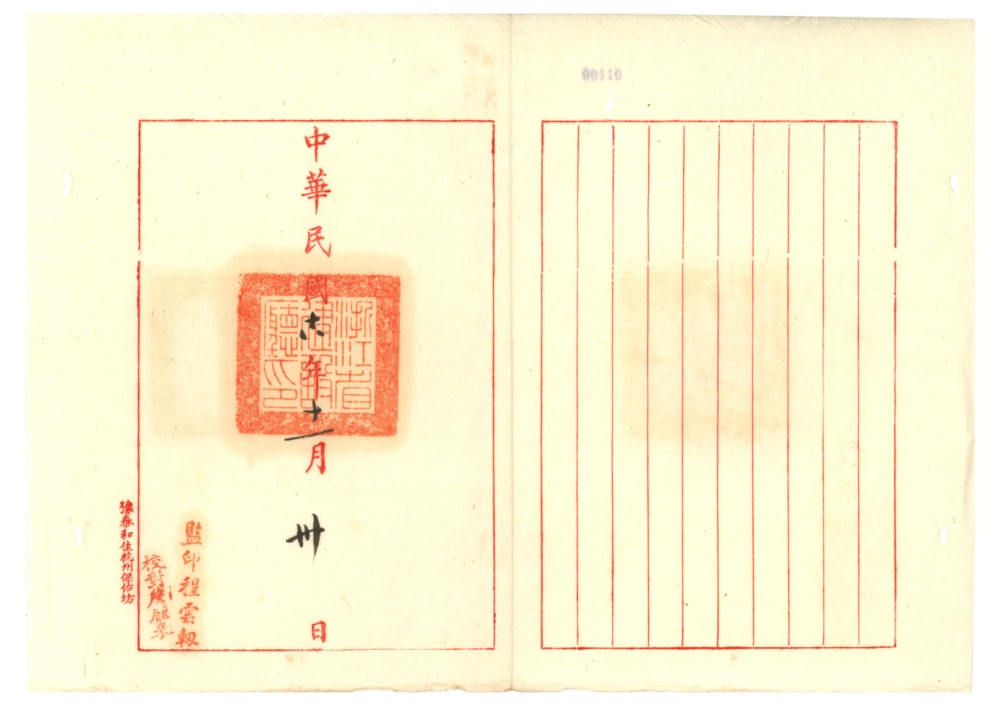 00110
中華民國十六年十一月卅日
浙江省
建設
廳印
監印程雲軔
校對
豫泰和住杭州保佑坊